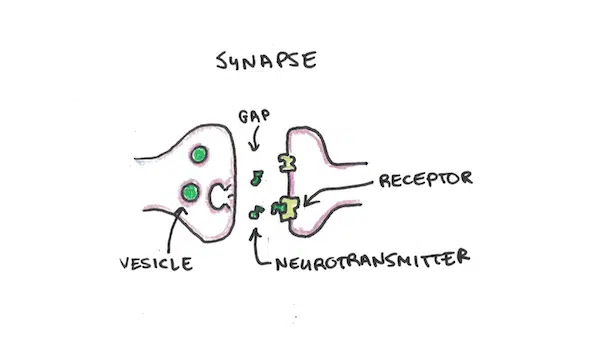 SYNAPSE
GAP
RECEPTOR
VESICLE
NEUROTRANSMITTER